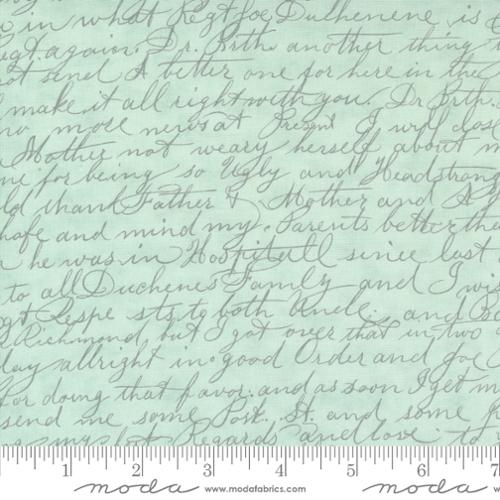 in what Regt Joe Duchenene is
Regt again. Dr. Brth. another thing
not send A better one for here in the
make it all right with you. Dr Brther
no more news at Present I will close
Mother not weary herself about m
me for being so Ugly and Headstrong
ld thank Father & Mother and A
hafe and mind my Parents better tha
he was in Hospitall since last
to all Duchenes Family and I wis
Respe sts to both Uncle and
Richmond but I got over that in two
day allright in good Order and Joe
for doing that favor. and as soon I get m
send me some Post. St. and some
my Regards and love to
1 2 3 4 5 6 7
moda www.modafabrics.com moda